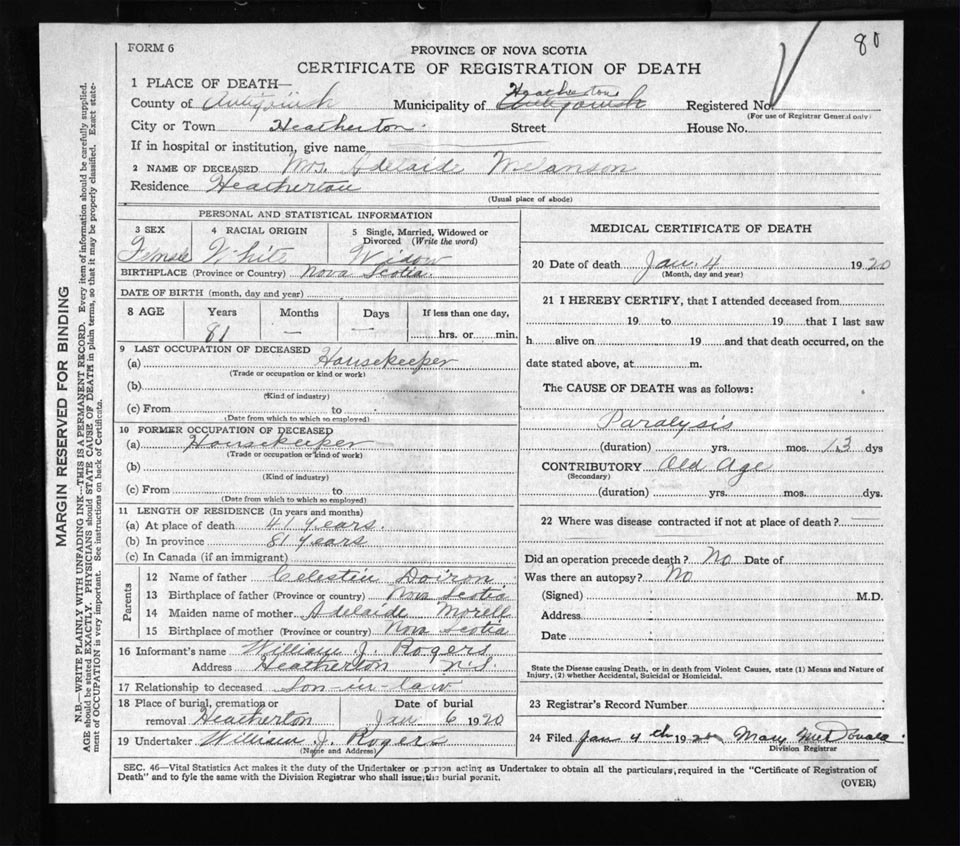 80
FORM 6
PROVINCE OF NOVA SCOTIA
CERTIFICATE OF REGISTRATION OF DEATH
1 PLACE OF DEATH—
County of Antigonish Municipality of Heatherton Antigonish Registered No.
(For use of Registrar General only)
City or Town Heatherton Street House No.
If in hospital or institution, give name
2 NAME OF DECEASED Mrs. Adelaide Melanson
Residence Heatherton
(Usual place of abode)
PERSONAL AND STATISTICAL INFORMATION
3 SEX 4 RACIAL ORIGIN 5 Single, Married, Widowed or
Divorced (Write the word)
Female White Widow
BIRTHPLACE (Province or Country) Nova Scotia.
DATE OF BIRTH (month, day and year)
8 AGE Years Months Days If less than one day,
81 — — hrs. or min.
9 LAST OCCUPATION OF DECEASED
(a) Housekeeper
(Trade or occupation or kind or work)
(b)
(Kind of industry)
(c) From to
(Date from which to which so employed)
10 FORMER OCCUPATION OF DECEASED
(a) Housekeeper
(Trade or occupation or kind of work)
(b)
(Kind of industry)
(c) From to
(Date from which to which so employed)
11 LENGTH OF RESIDENCE (In years and months)
(a) At place of death 41 years.
(b) In province 81 years
(c) In Canada (if an immigrant)
Parents
12 Name of father Celestin Doiron
13 Birthplace of father (Province or country) Nova Scotia
14 Maiden name of mother Adelaide Morell
15 Birthplace of mother (Province or country) Nova Scotia
16 Informant's name William J. Rogers
Address Heatherton N.S.
17 Relationship to deceased Son-in-law
18 Place of burial, cremation or Date of burial
removal Heatherton Jan 6 1920
19 Undertaker William J. Rogers
(Name and Address)
MEDICAL CERTIFICATE OF DEATH
20 Date of death Jan. 4 1920
(Month, day and year)
21 I HEREBY CERTIFY, that I attended deceased from
19 to 19 that I last saw
h alive on 19 and that death occurred, on the
date stated above, at m.
The CAUSE OF DEATH was as follows:
Paralysis
(duration) yrs. mos. 13 dys
CONTRIBUTORY Old Age
(Secondary)
(duration) yrs. mos. dys.
22 Where was disease contracted if not at place of death?
Did an operation precede death? No Date of
Was there an autopsy? No
(Signed) M.D.
Address
Date
State the Disease causing Death, or in death from Violent Causes, state (1) Means and Nature of
Injury, (2) whether Accidental, Suicidal or Homicidal.
23 Registrar's Record Number
24 Filed Jan 4th 1920 Mary McDonald
Division Registrar
SEC. 46—Vital Statistics Act makes it the duty of the Undertaker or person acting as Undertaker to obtain all the particulars required in the "Certificate of Registration of
Death" and to fyle the same with the Division Registrar who shall issue the burial permit.
(OVER)
MARGIN RESERVED FOR BINDING
N.B.—WRITE PLAINLY WITH UNFADING INK—THIS IS A PERMANENT RECORD. Every item of information should be carefully supplied.
AGE should be stated EXACTLY. PHYSICIANS should STATE CAUSE OF DEATH in plain terms, so that it may be properly classified. Exact state-
ment of OCCUPATION is very important. See instructions on back of Certificate.